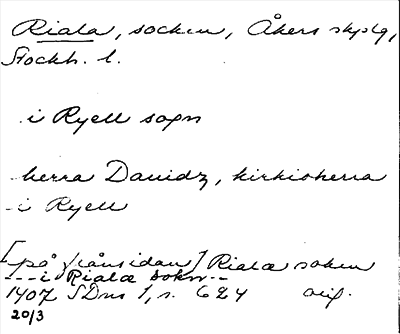 Riala, socken, Åkers skplg,
Stockh. l.
i Ryell sogn
herra Dauidz, kirkioherra
i Ryell
[på frånsidan] Riala soken
---i Riala sokn--
1407 SDns 1, s. 624 orig.
20/3